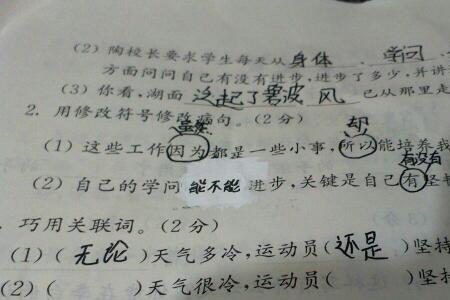 (2) 陶校长要求学生每天从 身体 、 学问
方面问问自己有没有进步,进步了多少,并讲
(3) 你看,湖面 泛起了碧波 风 已从那里走
2. 用修改符号修改病句。(2分)
虽然 却
(1) 这些工作因为都是一些小事,所以能培养我
有没有
(2) 自己的学问 能不能 进步,关键是自己有坚持
巧用关联词。(2分)
(1) ( 无论 )天气多冷,运动员(还是 )坚持
(2) ( )天气很冷,运动员( )坚持